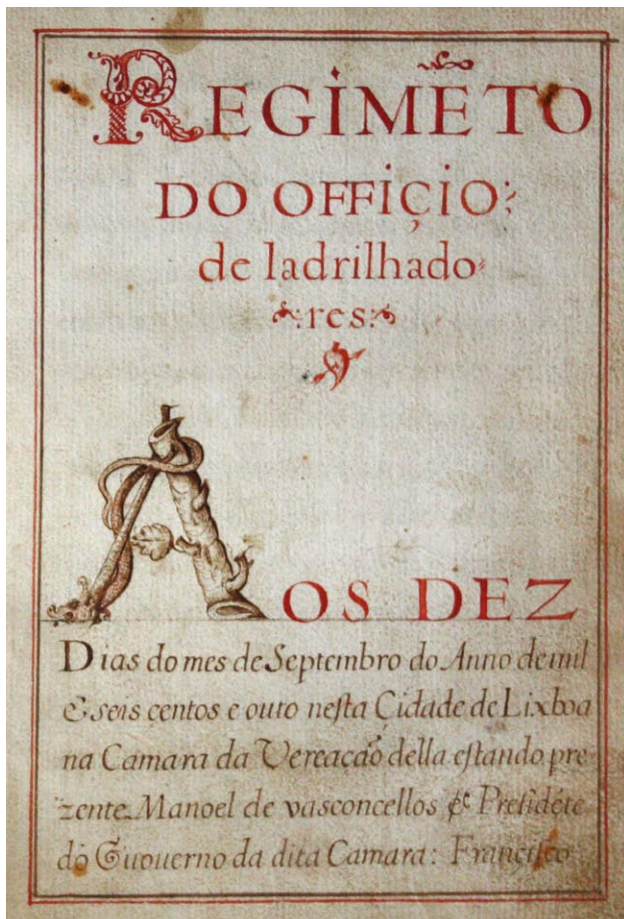 REGIMẼTO
DO OFFIÇIO:
de ladrilhado
res
AOS DEZ
Dias do mes de Septembro do Anno de mil
E seis çentos e outo nesta Çidade de Lixboa
na Camara da Vereacão della estando pre
zente Manoel de vasconcellos &c Presidẽte
do Guouerno da dita Camara: Francisco